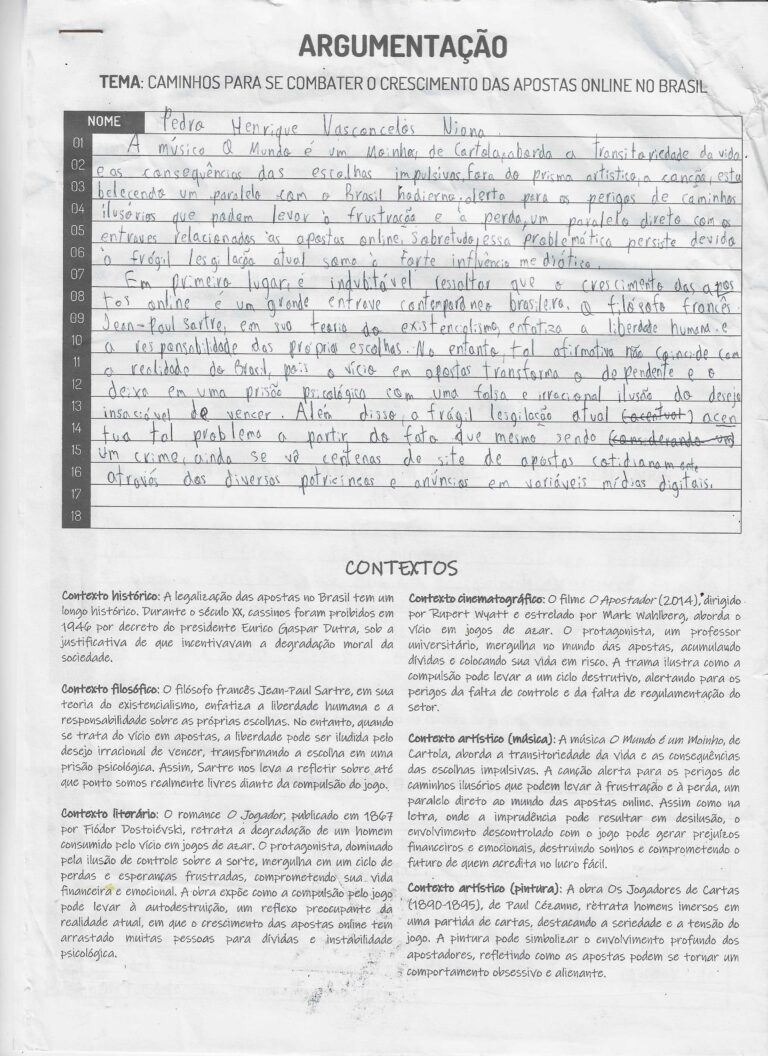 ARGUMENTAÇÃO
TEMA: CAMINHOS PARA SE COMBATER O CRESCIMENTO DAS APOSTAS ONLINE NO BRASIL
NOME Pedro Henrique Vasconcelos Viana
01 A músico O Mundo é um Moinho, de Cartola, aborda a transitoriedade da vida
02 e as consequências das escolhas impulsivas, fora do prisma artístico, a canção, esta
03 belecendo um paralelo com o Brasil hodierno, alerta para os perigos de caminhos
04 ilusórios que podem levar à frustração e à perda, um paralelo direto com os
05 entraves relacionados às apostas online. Sobretudo, essa problemática persiste devido
06 à frágil lesgilação atual somo à forte influência mediótica.
07 Em primeiro lugar, é indubitável ressaltar que o crescimento das apos
08 tas online é um grande entrave contemporâneo brasileiro. O filósofo francês
09 Jean-Paul Sartre, em sua teoria do existencolismo, enfatiza a liberdade humana e
10 a responsabilidade das próprias escolhas. No entanto, tal afirmativa não coincide com
11 a realidade do Brasil, pois o vício em apostas transforma o dependente e o
12 deixa em uma prisão psicológica com uma falsa e irracional ilusão do desejo
13 insaciável de vencer. Além disso, a frágil lesgilação atual (acentual) acen
14 tua tal problema a partir do fato que mesmo sendo (considerando um)
15 um crime, ainda se vê centenas de site de apostas cotidianamente
16 através dos diversos patricineos e anúncios em variáveis mídias digitais.
17
18
CONTEXTOS
Contexto histórico: A legalização das apostas no Brasil tem um
longo histórico. Durante o século XX, cassinos foram proibidos em
1946 por decreto do presidente Eurico Gaspar Dutra, sob a
justificativa de que incentivavam a degradação moral da
sociedade.
Contexto filosófico: O filósofo francês Jean-Paul Sartre, em sua
teoria do existencialismo, enfatiza a liberdade humana e a
responsabilidade sobre as próprias escolhas. No entanto, quando
se trata do vício em apostas, a liberdade pode ser iludida pelo
desejo irracional de vencer, transformando a escolha em uma
prisão psicológica. Assim, Sartre nos leva a refletir sobre até
que ponto somos realmente livres diante da compulsão do jogo.
Contexto literário: O romance O Jogador, publicado em 1867
por Fiódor Dostoiévski, retrata a degradação de um homem
consumido pelo vício em jogos de azar. O protagonista, dominado
pela ilusão de controle sobre a sorte, mergulha em um ciclo de
perdas e esperanças frustradas, comprometendo sua vida
financeira e emocional. A obra expõe como a compulsão pelo jogo
pode levar à autodestruição, um reflexo preocupante da
realidade atual, em que o crescimento das apostas online tem
arrastado muitas pessoas para dívidas e instabilidade
psicológica.
Contexto cinematográfico: O filme O Apostador (2014), dirigido
por Rupert Wyatt e estrelado por Mark Wahlberg, aborda o
vício em jogos de azar. O protagonista, um professor
universitário, mergulha no mundo das apostas, acumulando
dívidas e colocando sua vida em risco. A trama ilustra como a
compulsão pode levar a um ciclo destrutivo, alertando para os
perigos da falta de controle e da falta de regulamentação do
setor.
Contexto artístico (música): A música O Mundo é um Moinho, de
Cartola, aborda a transitoriedade da vida e as consequências
das escolhas impulsivas. A canção alerta para os perigos de
caminhos ilusórios que podem levar à frustração e à perda, um
paralelo direto ao mundo das apostas online. Assim como na
letra, onde a imprudência pode resultar em desilusão, o
envolvimento descontrolado com o jogo pode gerar prejuízos
financeiros e emocionais, destruindo sonhos e comprometendo o
futuro de quem acredita no lucro fácil.
Contexto artístico (pintura): A obra Os Jogadores de Cartas
(1890-1895), de Paul Cézanne, retrata homens imersos em
uma partida de cartas, destacando a seriedade e a tensão do
jogo. A pintura pode simbolizar o envolvimento profundo dos
apostadores, refletindo como as apostas podem se tornar um
comportamento obsessivo e alienante.